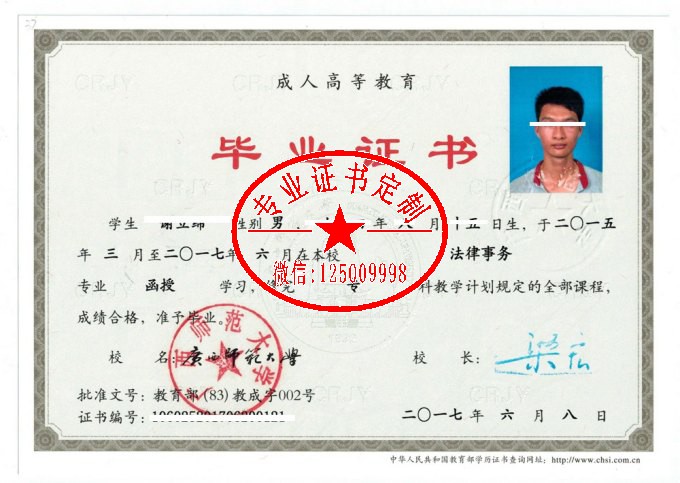 成人高等教育
毕业证书
专业证书定制
微信:125009998
学生 性别 男 年 八 月 十五 日生，于二〇一五
年 三 月至二〇一七年 六 月在本校 法律事务
专业 函授 学习， 专 科教学计划规定的全部课程，
成绩合格，准予毕业。
校 名：广西师范大学 校 长：梁宏
西师范大学
批准文号：教育部(83)教成字002号
证书编号：
二〇一七年 六 月 八 日
中华人民共和国教育部学历证书查询网址：http://www.chsi.com.cn